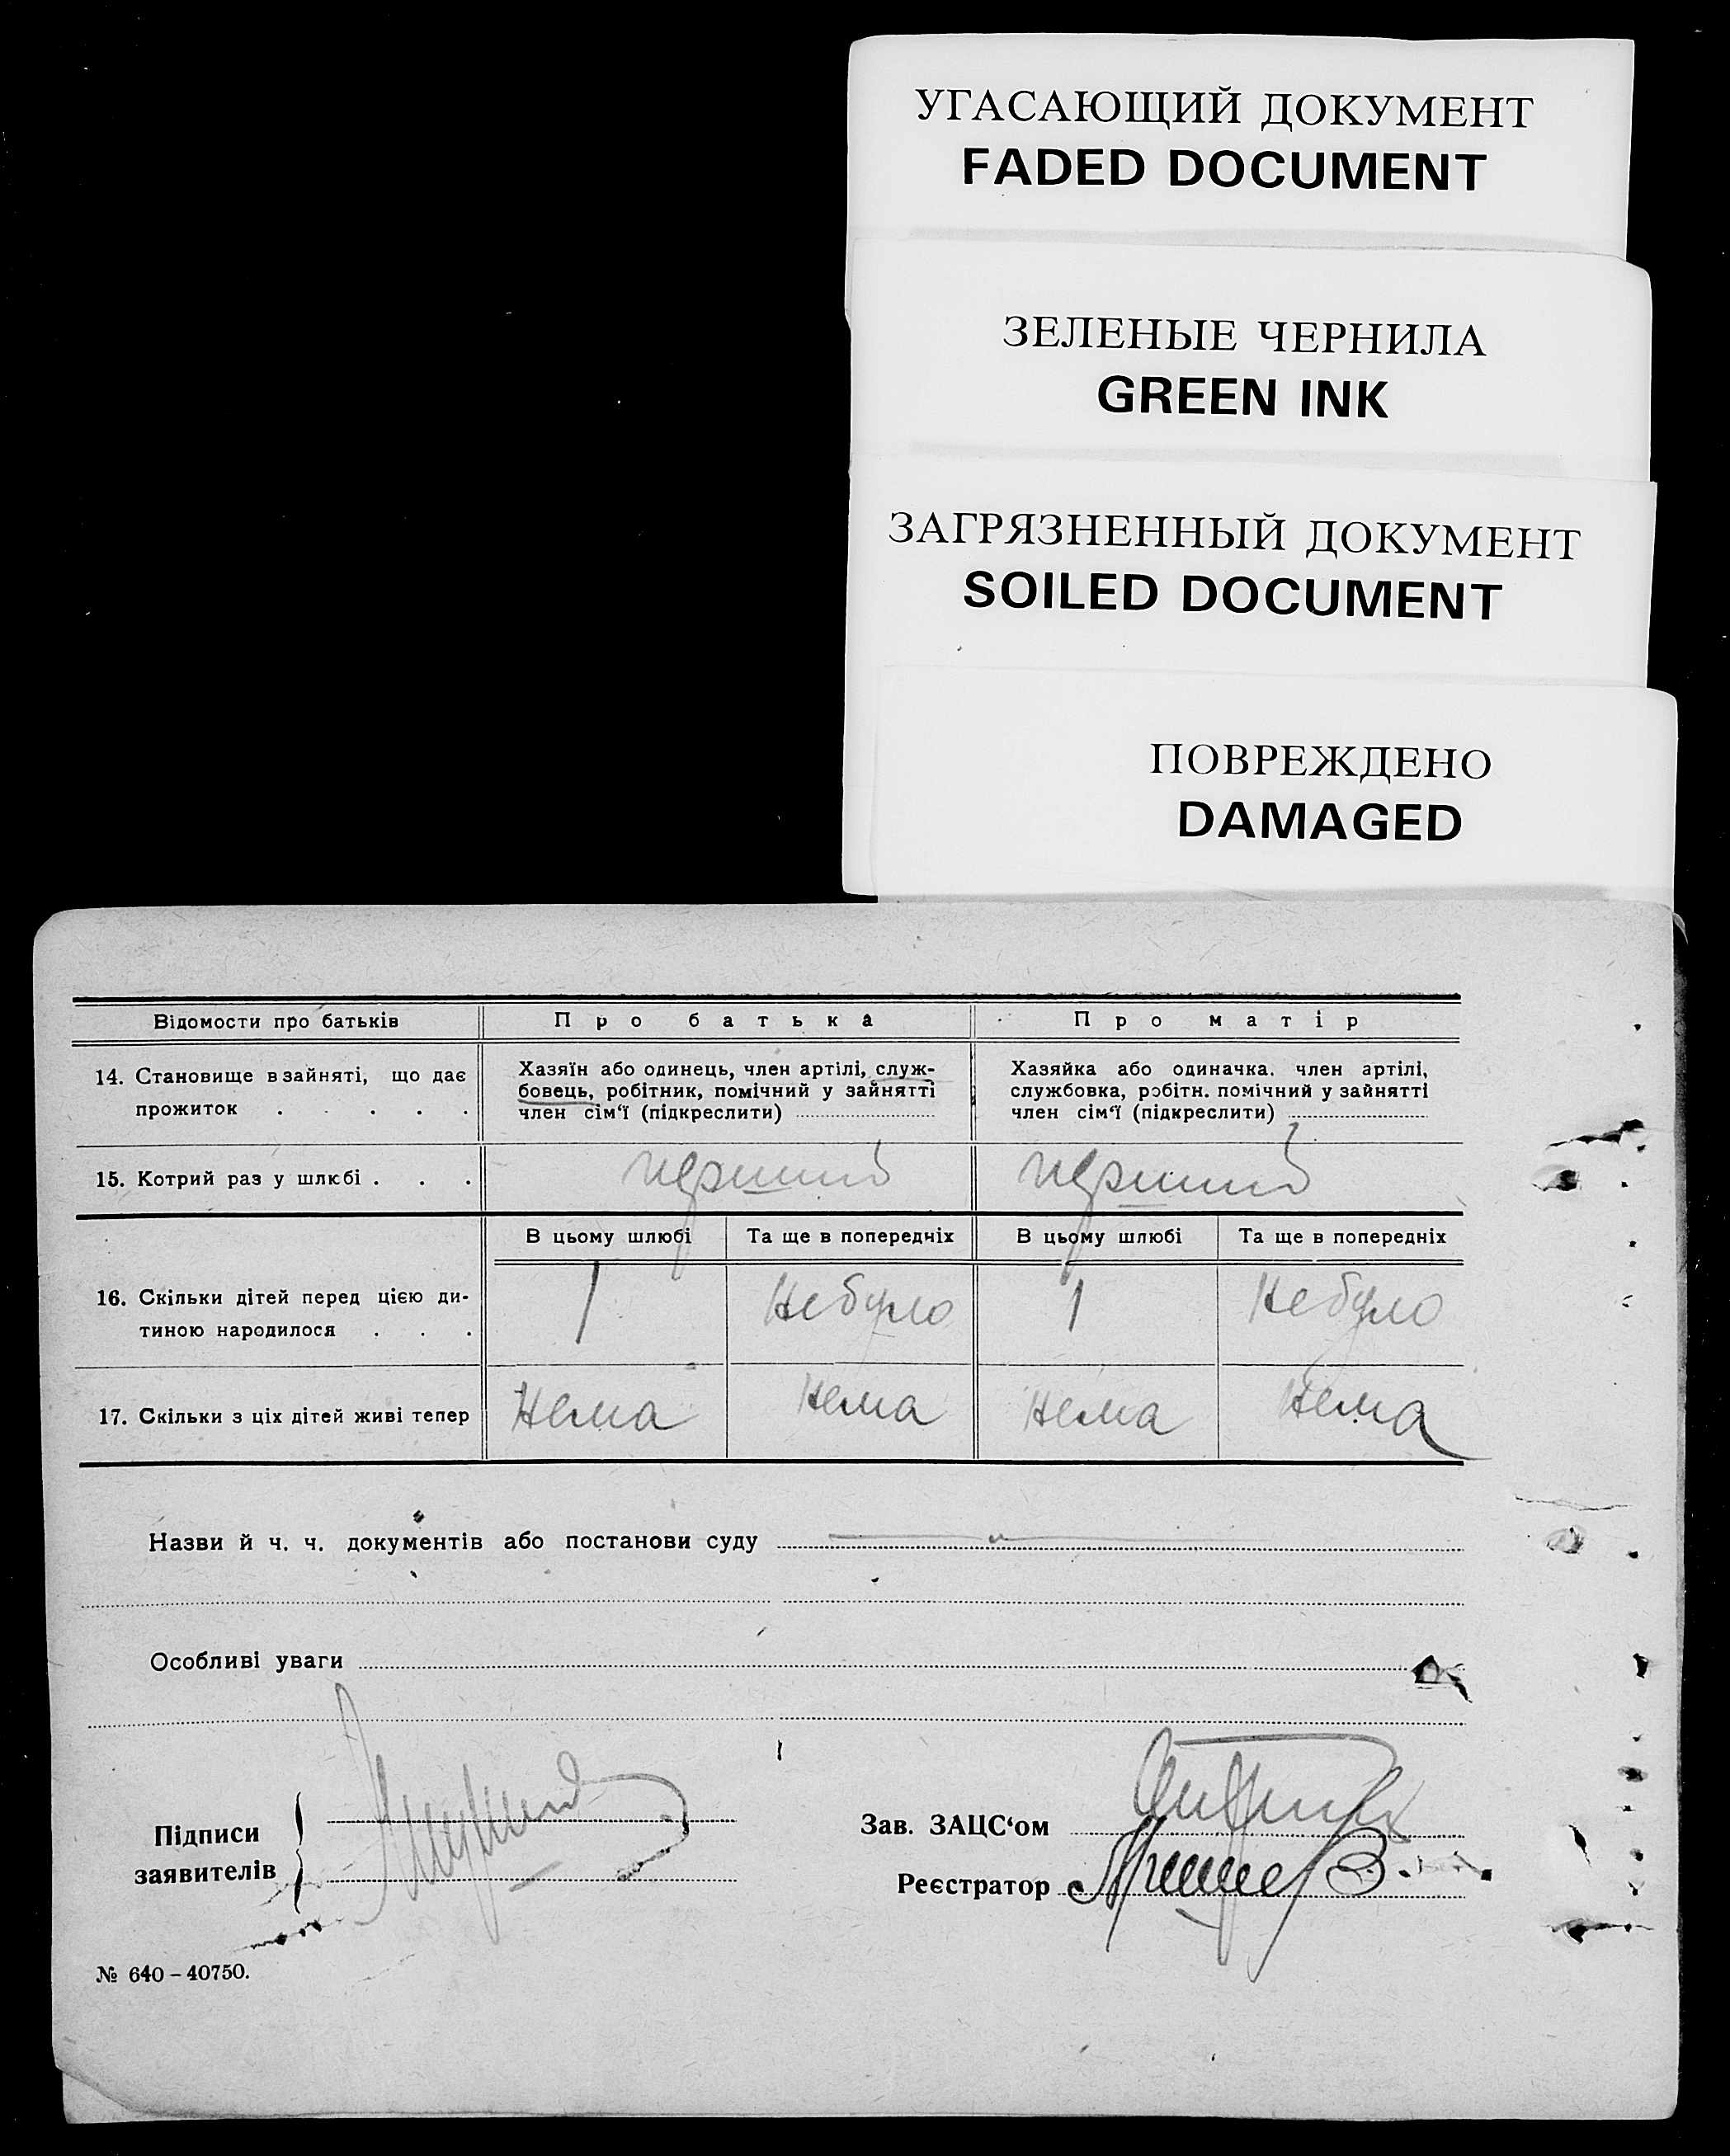 УГАСАЮЩИЙ ДОКУМЕНТ
FADED DOCUMENT
ЗЕЛЕНЫЕ ЧЕРНИЛА
GREEN INK
ЗАГРЯЗНЕННЫЙ ДОКУМЕНТ
SOILED DOCUMENT
ПОВРЕЖДЕНО
DAMAGED
Відомости про батьків Про батька Про матір
14. Становище в зайняті, що дає
прожиток . . . . .
Хазяїн або одинець, член артілі, служ-
бовець, робітник, помічний у зайнятті
член сім‘ї (підкреслити)
Хазяйка або одиначка. член артілі,
службовка, робітн. помічний у зайнятті
член сім‘ї (підкреслити)
15. Котрий раз у шлюбі . . . перший перший
В цьому шлюбі Та ще в попередніх В цьому шлюбі Та ще в попередніх
16. Скільки дітей перед цією ди-
тиною народилося . . .
1 Небуло 1 Небуло
17. Скільки з ціх дітей живі тепер Нема Нема Нема Нема
Назви й ч. ч. документів або постанови суду
Особливі уваги
Підписи
заявителів
Зав. ЗАЦС‘ом
Реєстратор
№ 640 – 40750.